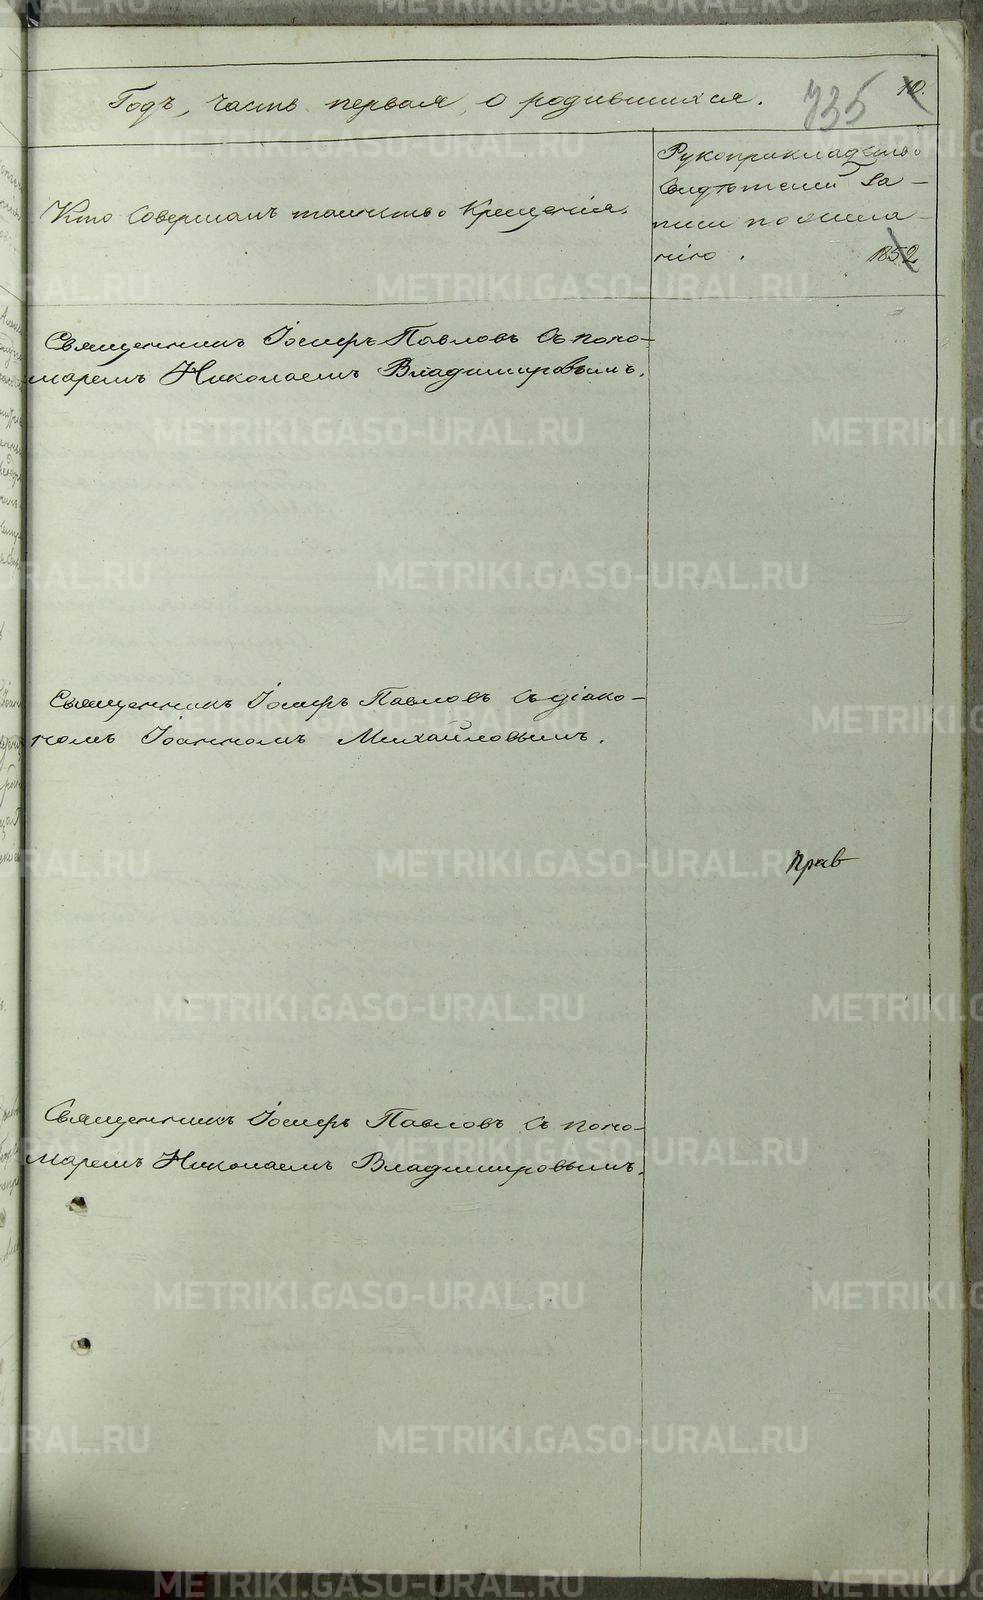 Годъ, часть первая, о родившихся.
735
10.
Кто совершалъ таинство Крещенія.
Рукоприкладство
свидѣтелей за-
писи по жела-
нію.
1852
Священникъ Іосифъ Павловъ съ поно-
маремъ Николаемъ Владимировымъ.
Священникъ Іосифъ Павловъ съ діако-
номъ Іоанномъ Михайловымъ.
Прав
Священникъ Іосифъ Павловъ съ поно-
маремъ Николаемъ Владимировымъ.
METRIKI.GASO-URAL.RU